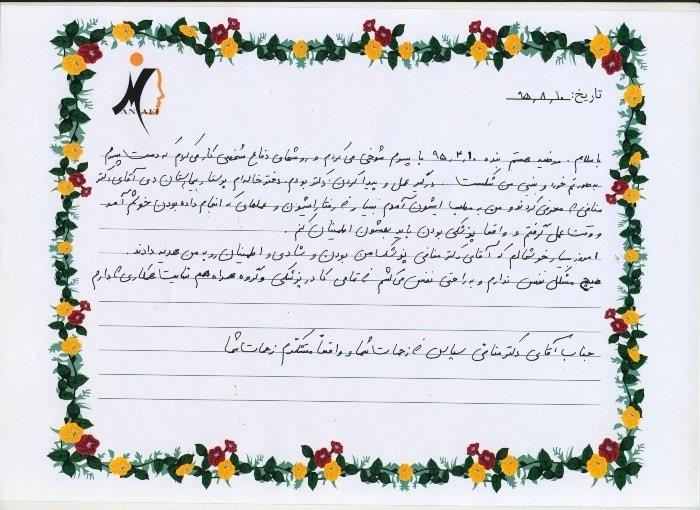 MANAFI
تاریخ: ۹۵،۸،۱۰
با سلام. هستم بنده ۹۵،۴،۱۰ با پسرم شوخی می‌کردم و روشهای دفاع شخصی کار می‌کردم که دست پسرم
به صورتم خورد و بینی من شکست. درگیر عمل و پیدا کردن دکتر بودم. دختر خاله‌ام پرستار بیمارستان دی آقای دکتر
منافی معرفی کردند و من به مطب ایشون آمدم. از رفتار ایشون و عملهای که انجام داده بودن خوشم آمد
و وقت عمل گرفتم و واقعا پزشکی بودن باید بهشون اطمینان کنم.
امروز بسیار خوشحالم که آقای دکتر منافی پزشک من بودن و شادی و اطمینان رو به من هدیه دادند.
هیچ مشکل تنفسی ندارم و به راحتی نفس می‌کشم تمامی کادر پزشکی و گروه همراه هم نهایت همکاری دارم
جناب آقای دکتر منافی سپاس از زحمات شما و واقعاً متشکرم زحمات شما